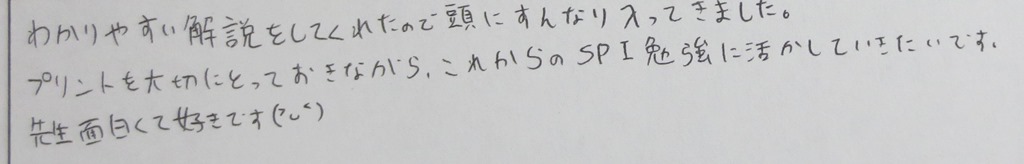 わかりやすい解説をしてくれたので頭にすんなり入ってきました。
プリントを大切にとっておきながら、これからのSPI勉強に活かしていきたいです。
先生面白くて好きです(^^)